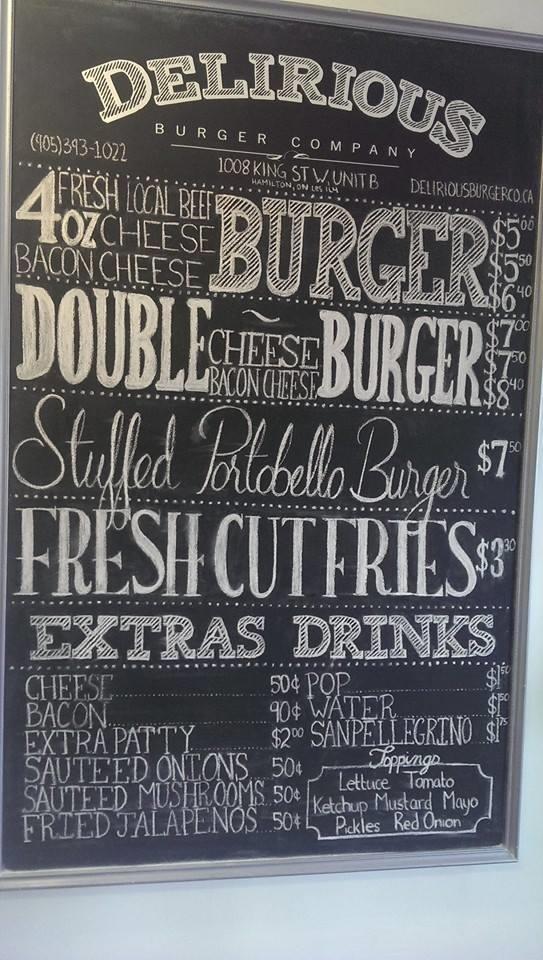 DELIRIOUS
BURGER COMPANY
(905)393-1022
1008 KING ST W, UNIT B
HAMILTON, ON L8S 1L4
DELIRIOUSBURGERCO.CA
4OZ FRESH LOCAL BEEF BURGER $5.00
CHEESE $5.50
BACON CHEESE $6.40
DOUBLE ~ BURGER $7.00
CHEESE $7.50
BACON CHEESE $8.40
Stuffed Portobello Burger $7.50
FRESH CUT FRIES $3.30
EXTRAS
CHEESE 50¢
BACON 90¢
EXTRA PATTY $2.00
SAUTEED ONIONS 50¢
SAUTEED MUSHROOMS 50¢
FRIED JALAPENOS 50¢
DRINKS
POP $1.50
WATER $1.50
SANPELLEGRINO $1.75
Toppings
Lettuce Tomato
Ketchup Mustard Mayo
Pickles Red Onion